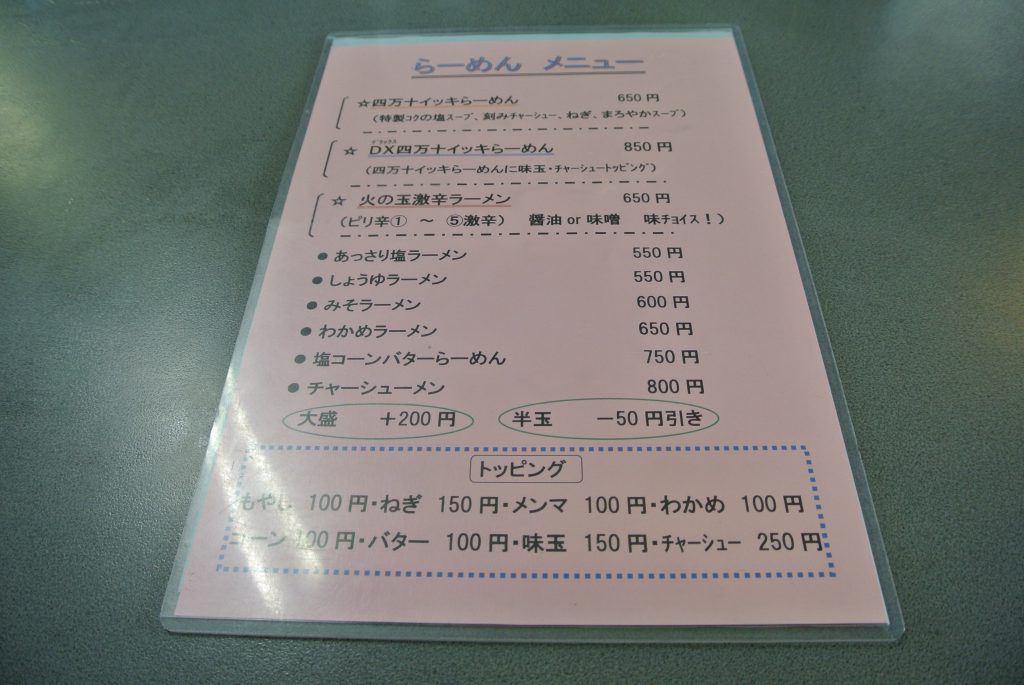 らーめん メニュー
☆四万十イッキらーめん 650円
(特製コクの塩スープ、刻みチャーシュー、ねぎ、まろやかスープ)
デラックス
☆ DX四万十イッキらーめん 850円
(四万十イッキらーめんに味玉・チャーシュートッピング)
☆ 火の玉激辛ラーメン 650円
(ピリ辛① ～ ⑤激辛) 醤油 or 味噌 味チョイス!)
●あっさり塩ラーメン 550円
●しょうゆラーメン 550円
●みそラーメン 600円
●わかめラーメン 650円
●塩コーンバターらーめん 750円
●チャーシューメン 800円
大盛 +200円 半玉 −50円引き
トッピング
もやし 100円・ねぎ 150円・メンマ 100円・わかめ 100円
コーン 100円・バター 100円・味玉 150円・チャーシュー 250円